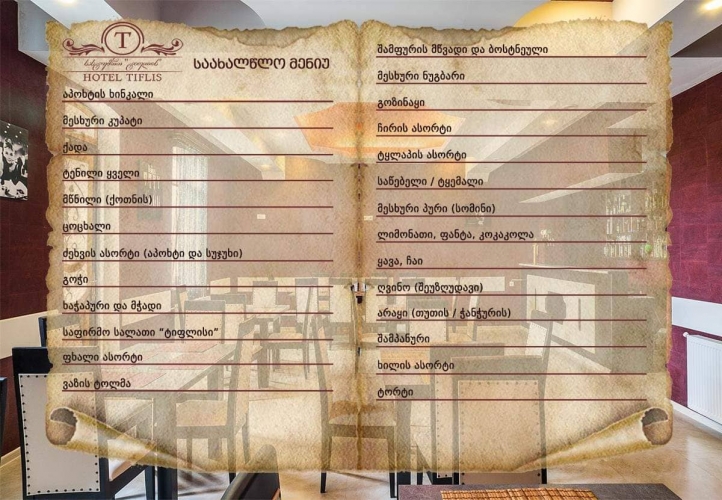 T
HOTEL TIFLIS
საახალწლო მენიუ
აპოხტის ხინკალი
მესხური კუპატი
ქადა
ტენილი ყველი
მწნილი (ქოთნის)
ცოცხალი
ძეხვის ასორტი (აპოხტი და სუჯუხი)
გოჭი
ხაჭაპური და მჭადი
საფირმო სალათი "ტიფლისი"
ფხალი ასორტი
ვაზის ტოლმა
შამფურის მწვადი და ბოსტნეული
მესხური ნუგბარი
გოზინაყი
ჩირის ასორტი
ტყლაპის ასორტი
საწებელი / ტყემალი
მესხური პური (სომინი)
ლიმონათი, ფანტა, კოკაკოლა
ყავა, ჩაი
ღვინო (შეუზღუდავი)
არაყი (თუთის / ჭანჭურის)
შამპანური
ხილის ასორტი
ტორტი